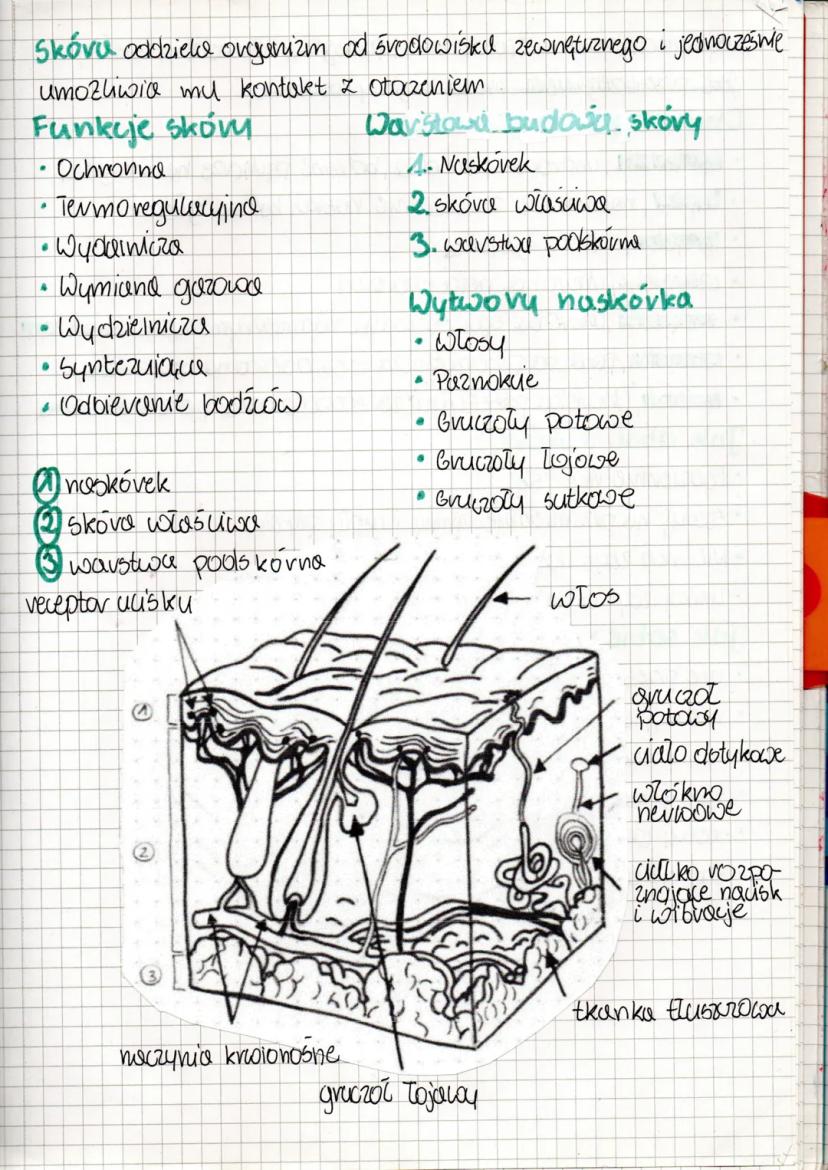 Skóra oddziela organizm od środowiska zewnętrznego i jednocześnie
umożliwia mu kontakt z otoczeniem
Funkcje skóry
• Ochronna
• Termoregulacyjna
• Wydalnicza
• Wymiana gazowa
• Wydzielnicza
• Syntezująca
• Odbieranie bodźców
Warstowa budowa skóry
1. Naskórek
2. skóra właściwa
3. warstwa podskórna
Wytwory naskórka
• Włosy
• Paznokcie
• Gruczoły potowe
• Gruczoły łojowe
• Gruczoły sutkowe
1 naskórek
2 skóra właściwa
3 warstwa podskórna
receptor ucisku
włos
gruczoł
potowy
ciało dotykowe
włókno
nerwowe
ciałko rozpo-
znające nacisk
i wibracje
tkanka tłuszczowa
naczynia krwionośne
gruczoł łojowy
1
2
3